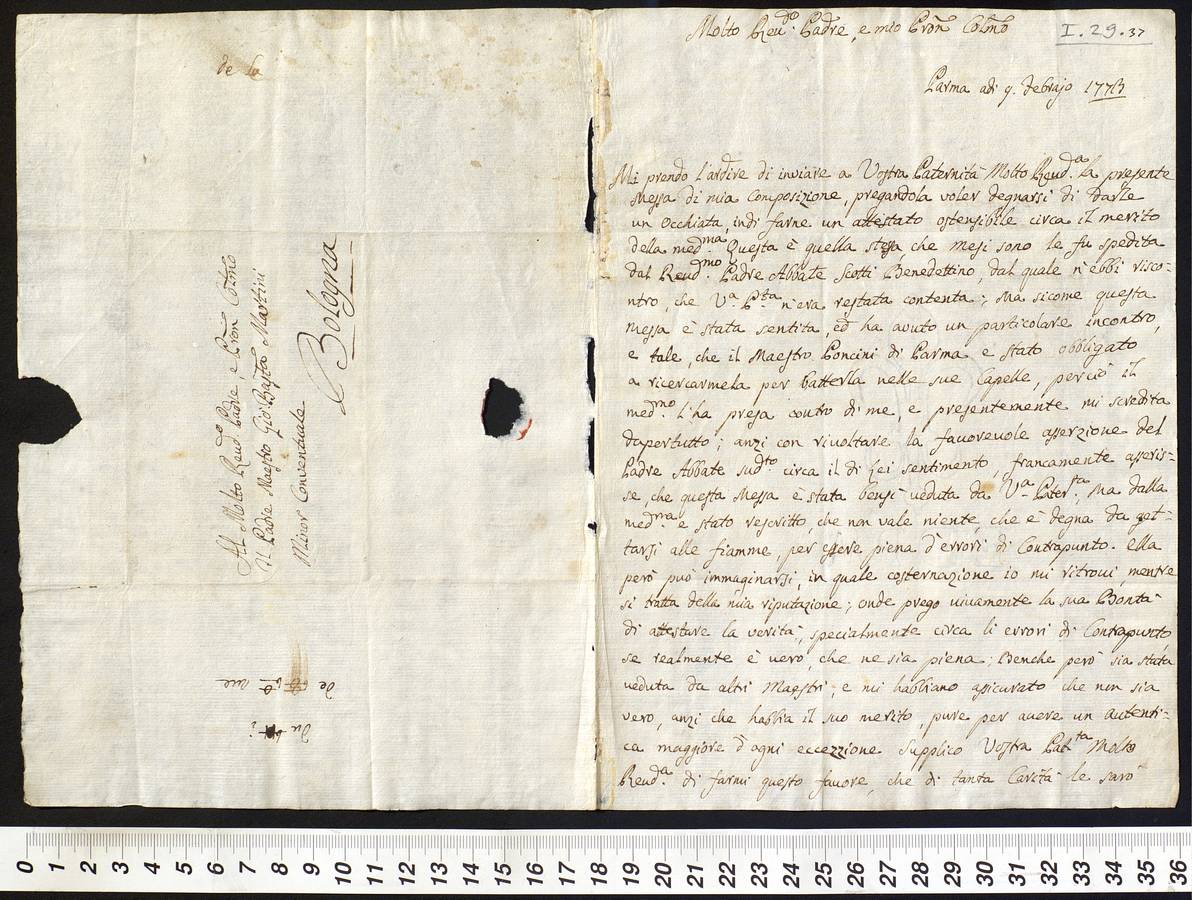 de la
Al Molto Reud.o Padre, e Pron Colmo
Il Padre Maestro Gio: Batta Martini
Minor Conventuale
Bologna
Molto Reu.do Padre, e mio Pron Colmo
I.29.37
Parma adi 9. Febrajo 1773
Mi prendo l'ardire di inviare a Vostra Paternità Molto Reud.a la presente
Messa di mia Composizione, pregandola voler degnarsi di darle
un Occhiata, indi farne un attestato ostensibile circa il merito
della med.ma Questa è quella stessa, che mesi sono le fu spedita
dal Reud.mo Padre Abbate Scotti Benedettino, dal quale n'ebbi risco=
ntro, che V.a P.tà n'era restata contenta; Ma sicome questa
Messa è stata sentita, ed ha avuto un particolare incontro,
e tale, che il Maestro Poncini di Parma è stato obbligato
a ricercarmela per batterla nelle sue Capelle, perciò il
med.mo l'ha presa contro di me, e presentemente mi scredita
dapertutto; anzi con rivoltare la favorevole asserzione del
Padre Abbate sud.to circa il di Lei sentimento, francamente asseris=
se, che questa Messa è stata bensì veduta da V.a Pater.tà, Ma dalla
med.ma è stato rescritto, che non vale niente, che è degna da get=
tarsi alle fiamme, per essere piena d'errori di Contrapunto. Ella
però può immaginarsi, in quale costernazione io mi ritrovi, mentre
si tratta della mia riputazione; onde prego vivamente la sua Bontà
di attestare la verità, specialmente circa li errori di Contrapunto,
se realmente è vero, che ne sia piena; Benche però sia stata
veduta da altri Maestri, e mi habbiano assicurato che non sia
vero, anzi che habbia il suo merito, pure per avere un autenti=
ca maggiore d'ogni eccezzione supplico Vostra Pat.tà Molto
Reud.a di farmi questo favore, che di tanta Carità le sarò
0 1 2 3 4 5 6 7 8 9 10 11 12 13 14 15 16 17 18 19 20 21 22 23 24 25 26 27 28 29 30 31 32 33 34 35 36